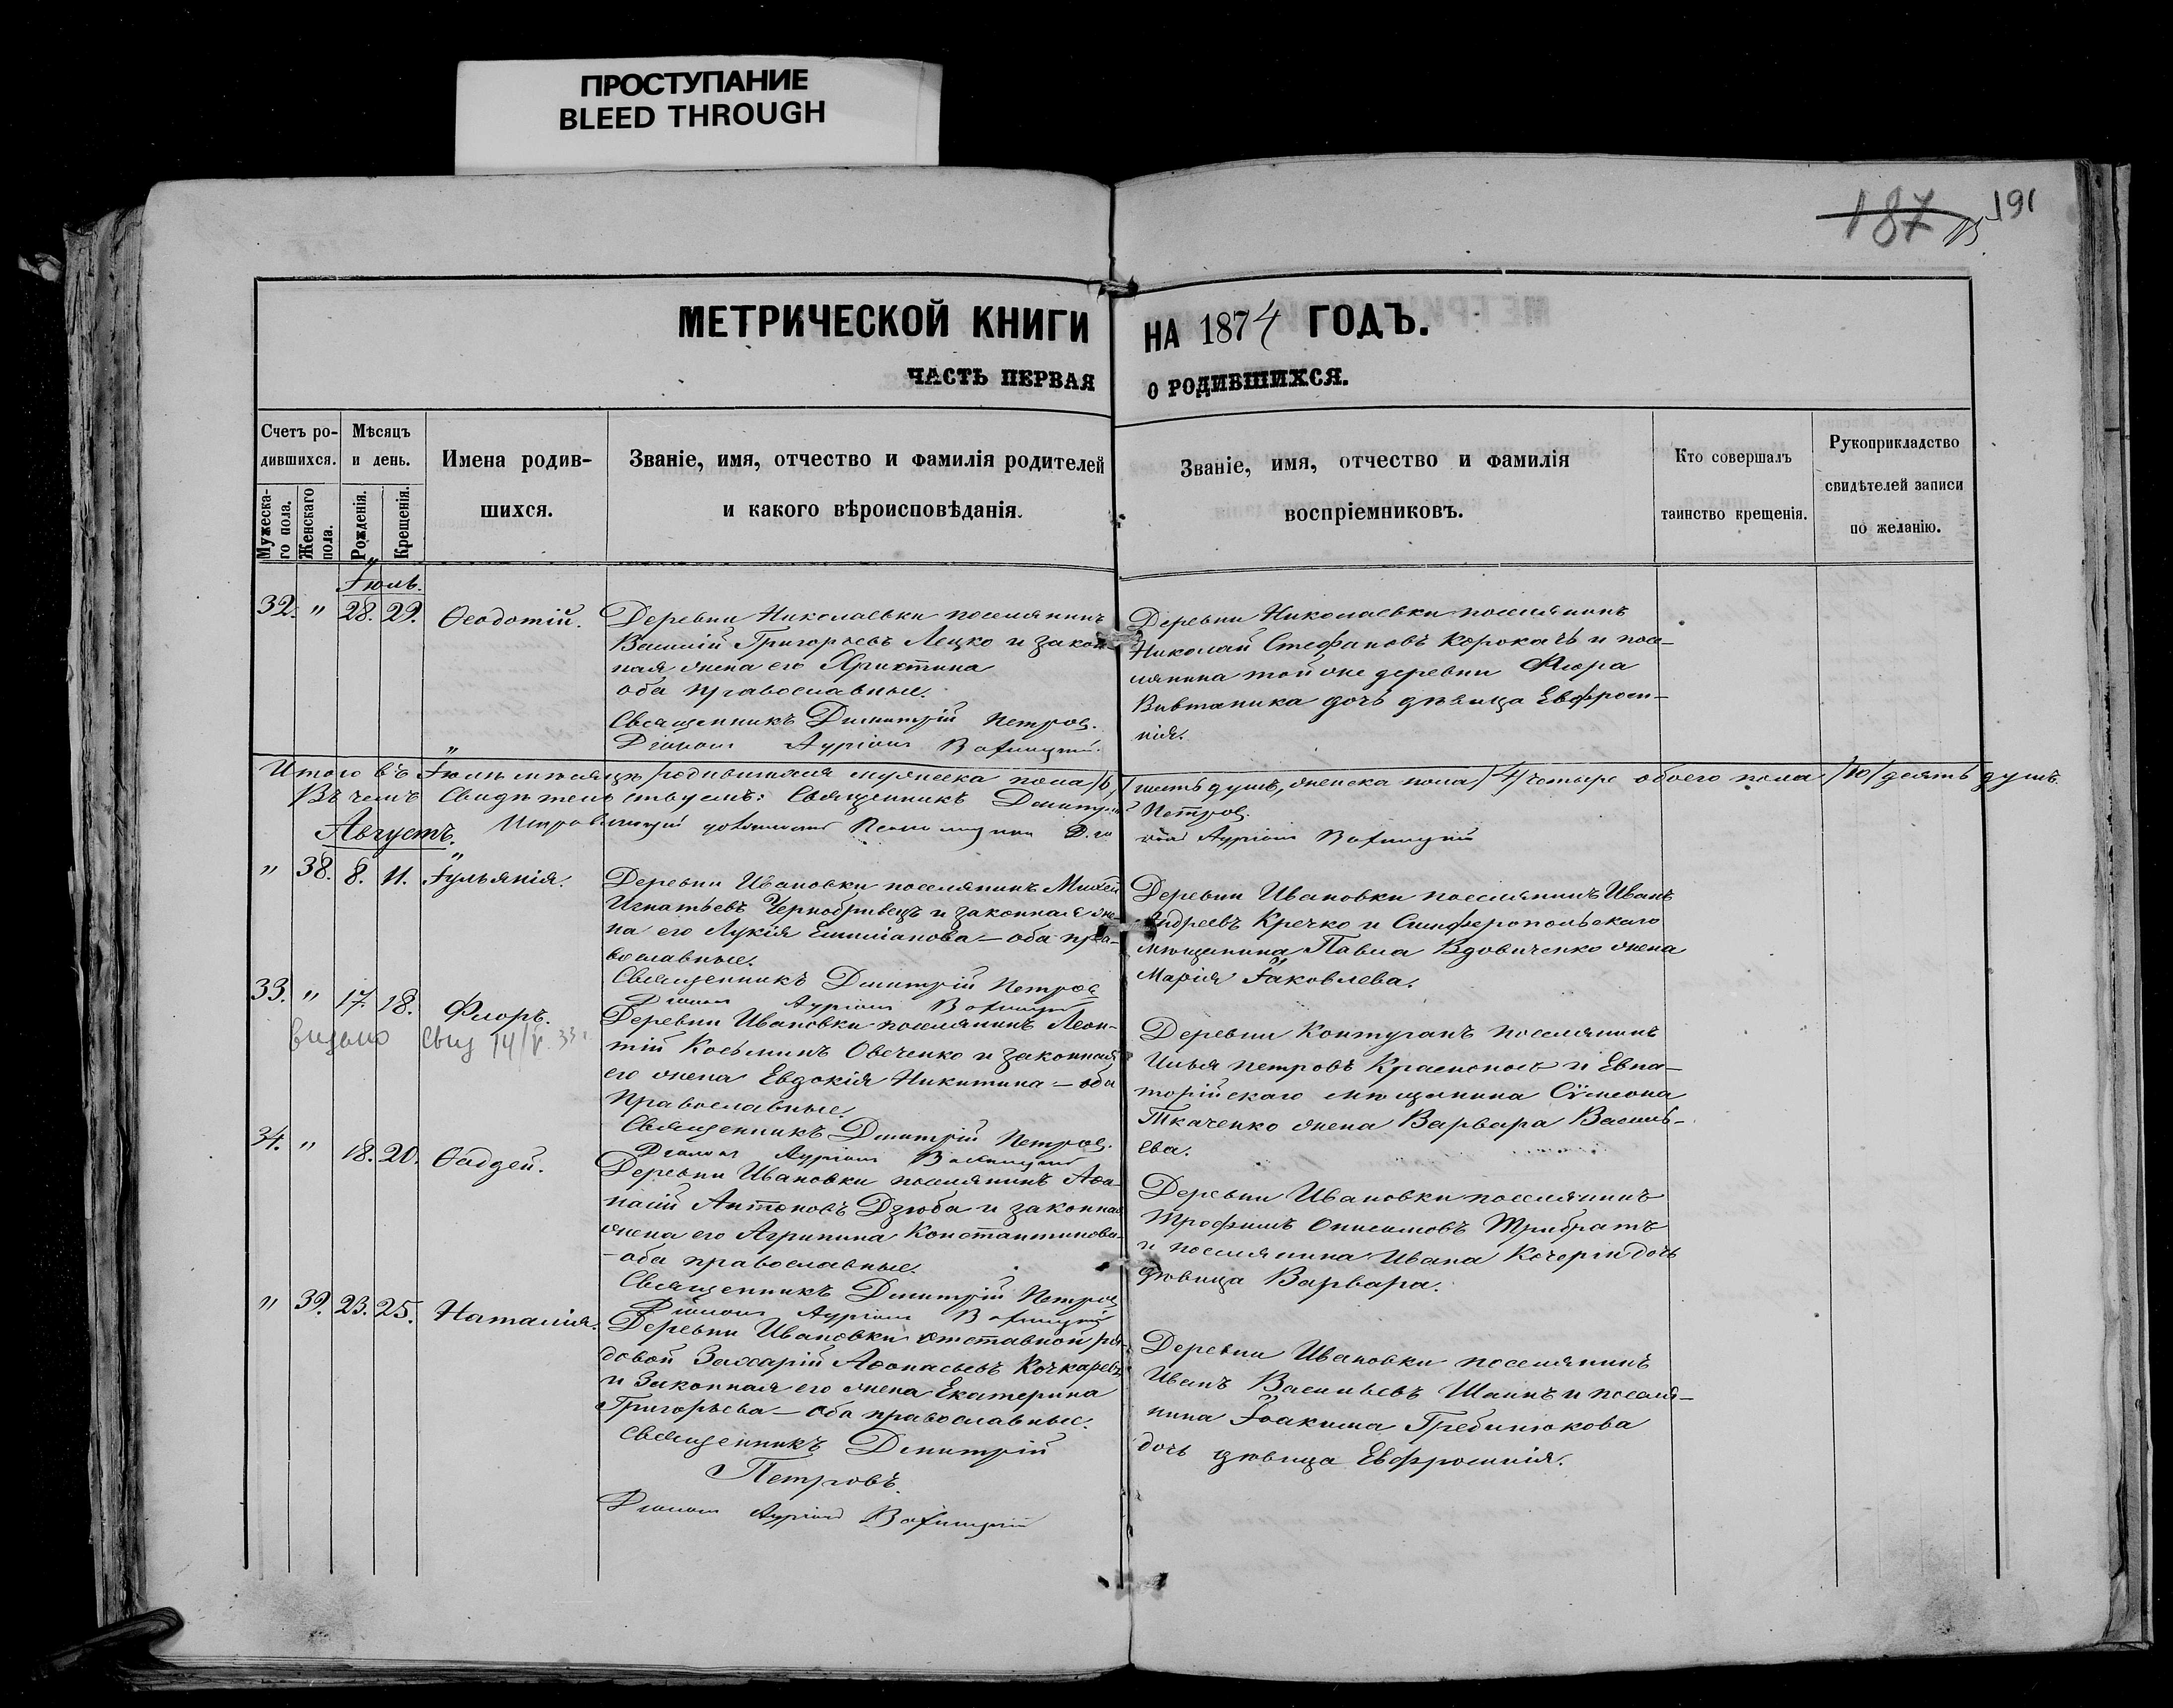 ПРОСТУПАНИЕ
BLEED THROUGH
187
191
МЕТРИЧЕСКОЙ КНИГИ НА 1874 ГОДЪ.
ЧАСТЬ ПЕРВАЯ О РОДИВШИХСЯ.
Счетъ ро-
дившихся.
Мужеска-
го пола.
Женскаго
пола.
Мѣсяцъ
и день.
Рожденія.
Крещенія.
Имена родив-
шихся.
Званіе, имя, отчество и фамилія родителей
и какого вѣроисповѣданія.
Званіе, имя, отчество и фамилія
воспріемниковъ.
Кто совершалъ
таинство крещенія.
Рукоприкладство
свидѣтелей записи
по желанію.
Іюль.
32. " 28. 29. Ѳеодотій.
Деревни Николаевки поселянинъ
Василій Григорьевъ Лецко и закон-
ная жена его Христина
оба православные.
Священникъ Димитрій Петров.
Діаконъ
Деревни Николаевки поселянинъ
Николай Стефановъ Корокачъ и посе-
лянина той же деревни Флора
Вивтаника дочь дѣвица Евфроси-
нія.
Итого въ Іюлѣ мѣсяцѣ родившихся мужеска пола /6/ шесть душъ, женска пола /4/ четыре обоего пола /10/ десять душъ.
Въ чемъ свидѣтельствуемъ: Священникъ Димитрій Петров.
Исправляющій должность Псаломщика
Августъ.
" 38. 8. 11. Іульянія.
Деревни Ивановки поселянинъ Михей
Игнатьевъ Чернобривецъ и законная же-
на его Лукія Емиліанова – оба пра-
вославные.
Священникъ Димитрій Петров
Діаконъ
Деревни Ивановки поселянинъ Иванъ
Андреевъ Кречко и Симферопольскаго
мѣщанина Павла Вдовиченко жена
Марія Іаковлева.
33. " 17. 18. Флоръ.
Деревни Ивановки поселянинъ Леон-
тій Косьминъ Овеченко и законная
его жена Евдокія Никитина – оба
православные.
Священникъ Димитрій Петров.
Діаконъ
Деревни Контуганъ поселянинъ
Илья Петровъ Краснополь и Евпа-
торійскаго мѣщанина Сѵмеона
Ткаченко жена Варвара Василь-
ева.
34. " 18. 20. Ѳаддей.
Деревни Ивановки поселянинъ Аѳа-
насій Антоновъ Дзюба и законная
жена его Агрипина Константинова
– оба православные.
Священникъ Димитрій Петров
Діаконъ
Деревни Ивановки поселянинъ
Трофимъ Онисимовъ Трибратъ
и поселянина Ивана Кочерги дочь
дѣвица Варвара.
" 39. 23. 25. Наталія.
Деревни Ивановки отставной ря-
довой Захарій Аѳонасьевъ Кочкаревъ
и законная его жена Екатерина
Григорьева – оба православные.
Священникъ Димитрій
Петровъ.
Діаконъ
Деревни Ивановки поселянинъ
Иванъ Васильевъ Шаинъ и поселя-
нина Іоакима Гребинюкова
дочь дѣвица Евфросинія.